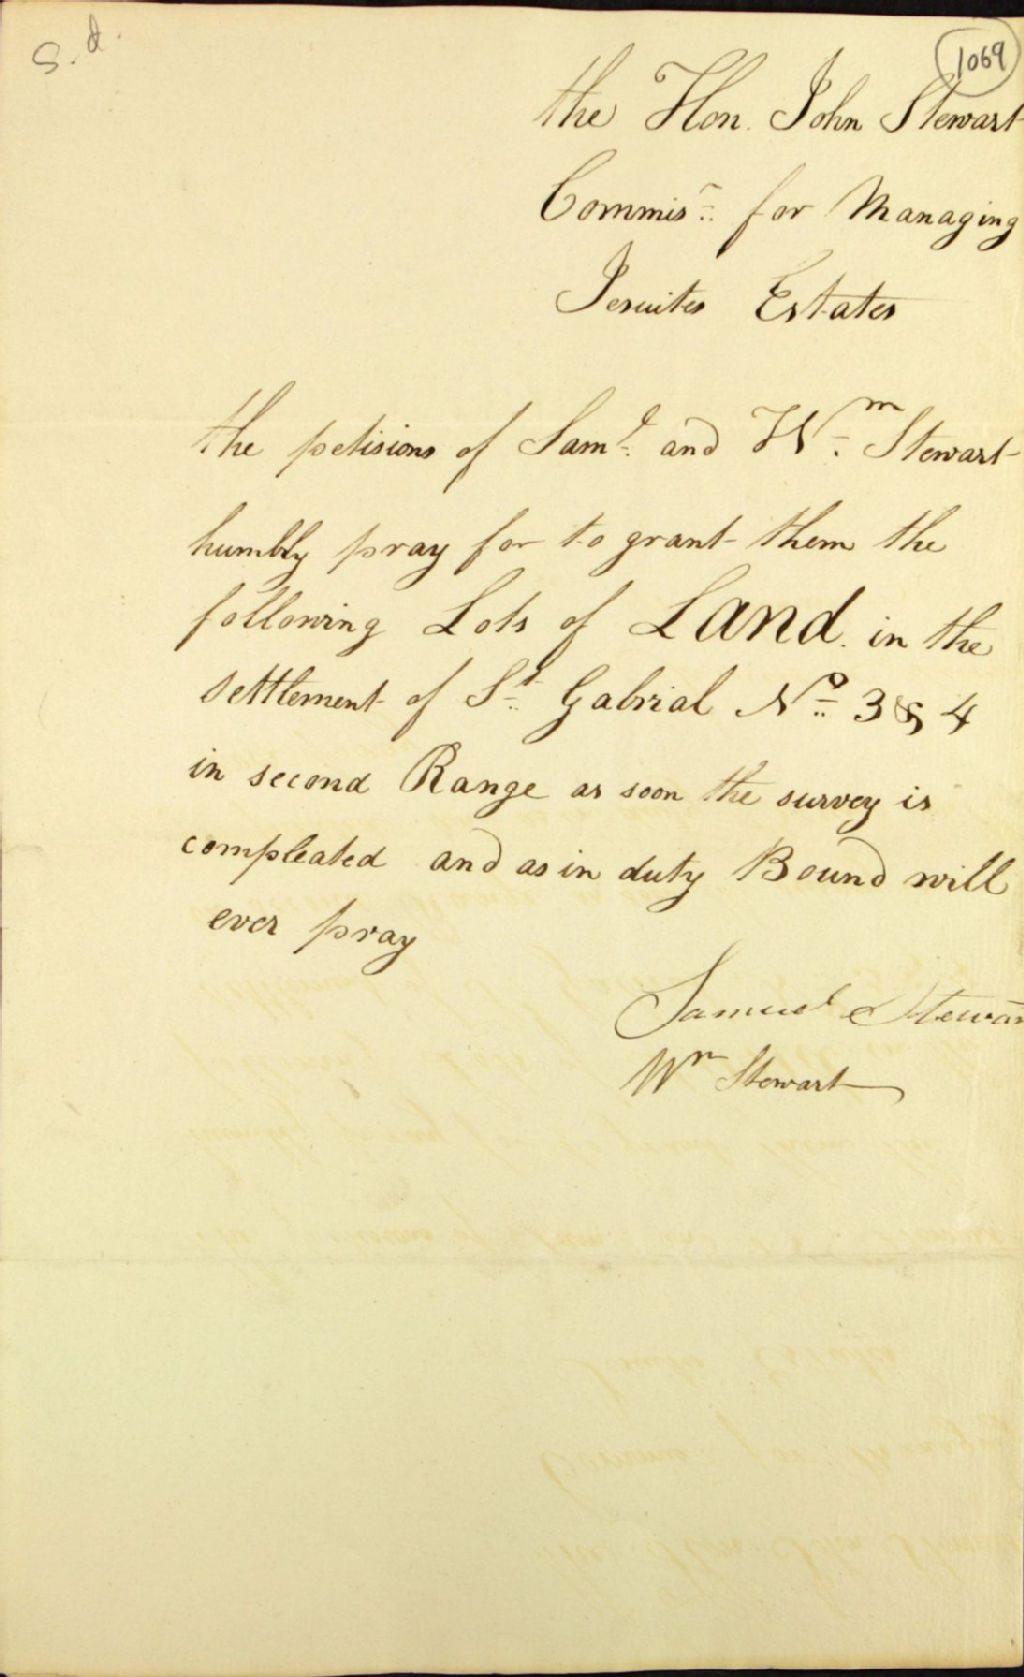 S.d.
1069
the Hon. John Stewart
Commisr. for Managing
Jesuites Estates
the petisions of Saml. and Wm. Stewart
humbly pray for to grant them the
following Lots of Land. in the
settlement of St. Gabrial No. 3 & 4
in second Range as soon the survey is
compleated and as in duty Bound will
ever pray
Samuel Stewar
Wm Stewart